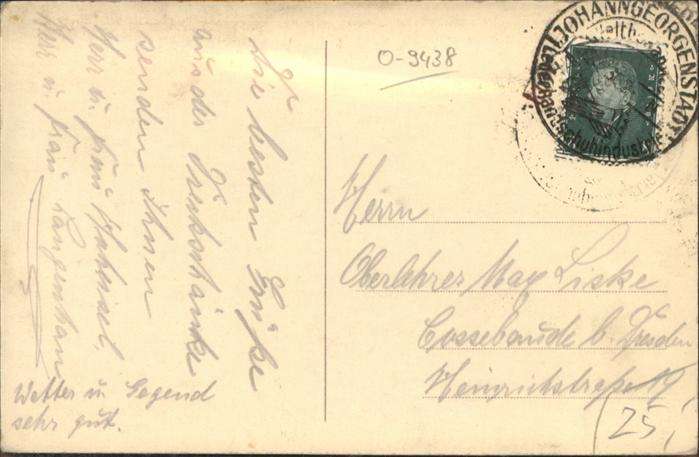 Die besten Grüße
aus der
senden Ihnen
Herr u. Frau
Herr u. Frau Langenhan
Wetter u. Gegend
sehr gut.
O-9438
JOHANNGEORGENSTADT
Herrn
Oberlehrer Max Liske
Cossebaude b. Dresden
Heinrichstraße
25,